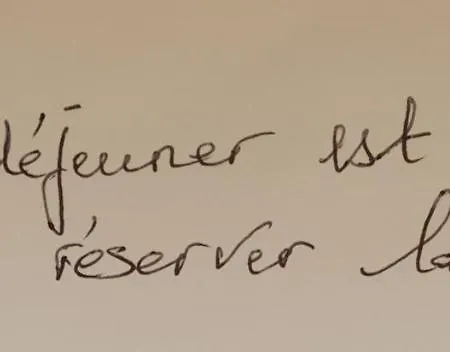 déjeuner est
réserver la